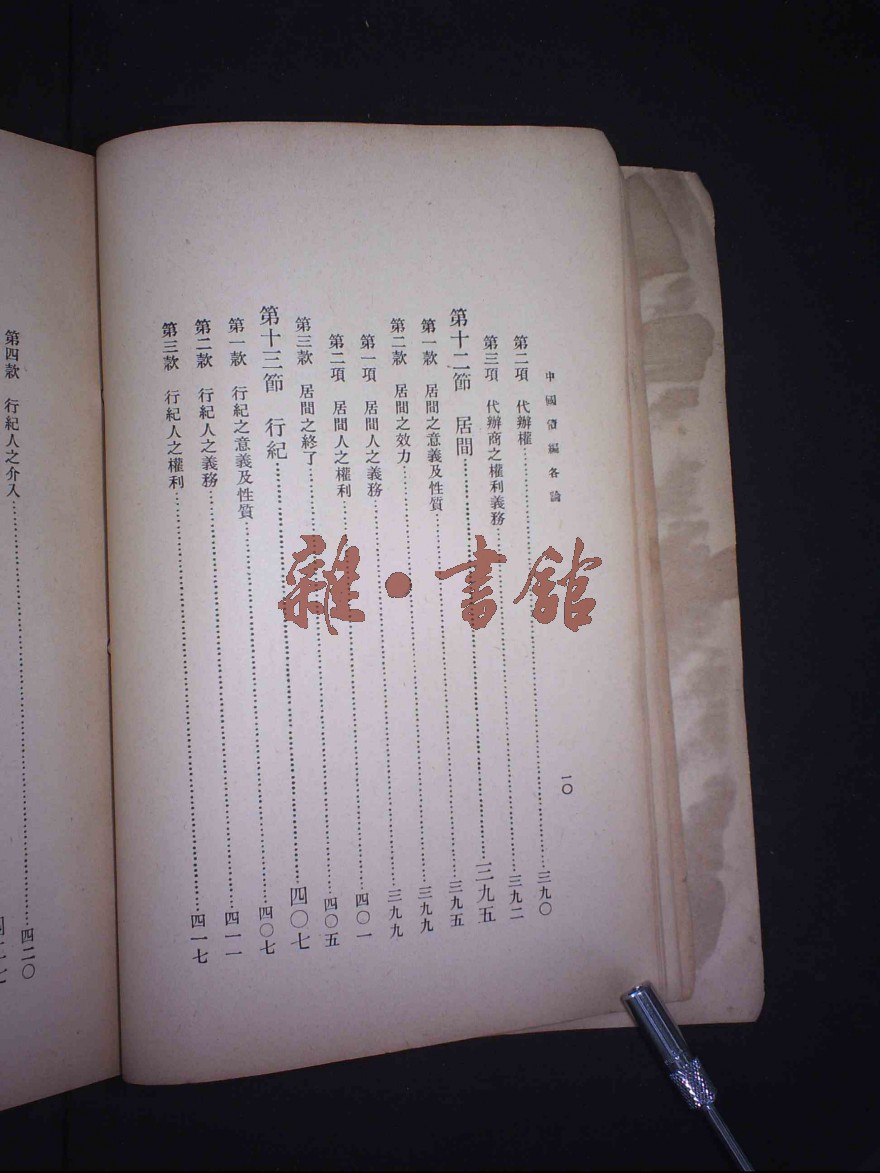 中國債編各論
一〇
第二項　代辦權……三九〇
第三項　代辦商之權利義務……三九二
第十二節　居間……三九五
第一款　居間之意義及性質……三九五
第二款　居間之效力……三九九
第一項　居間人之義務……三九九
第二項　居間人之權利……四〇一
第三款　居間之終了……四〇五
第十三節　行紀……四〇七
第一款　行紀之意義及性質……四〇七
第二款　行紀人之義務……四一一
第三款　行紀人之權利……四一七
第四款　行紀人之介入……四二〇
雜・書館